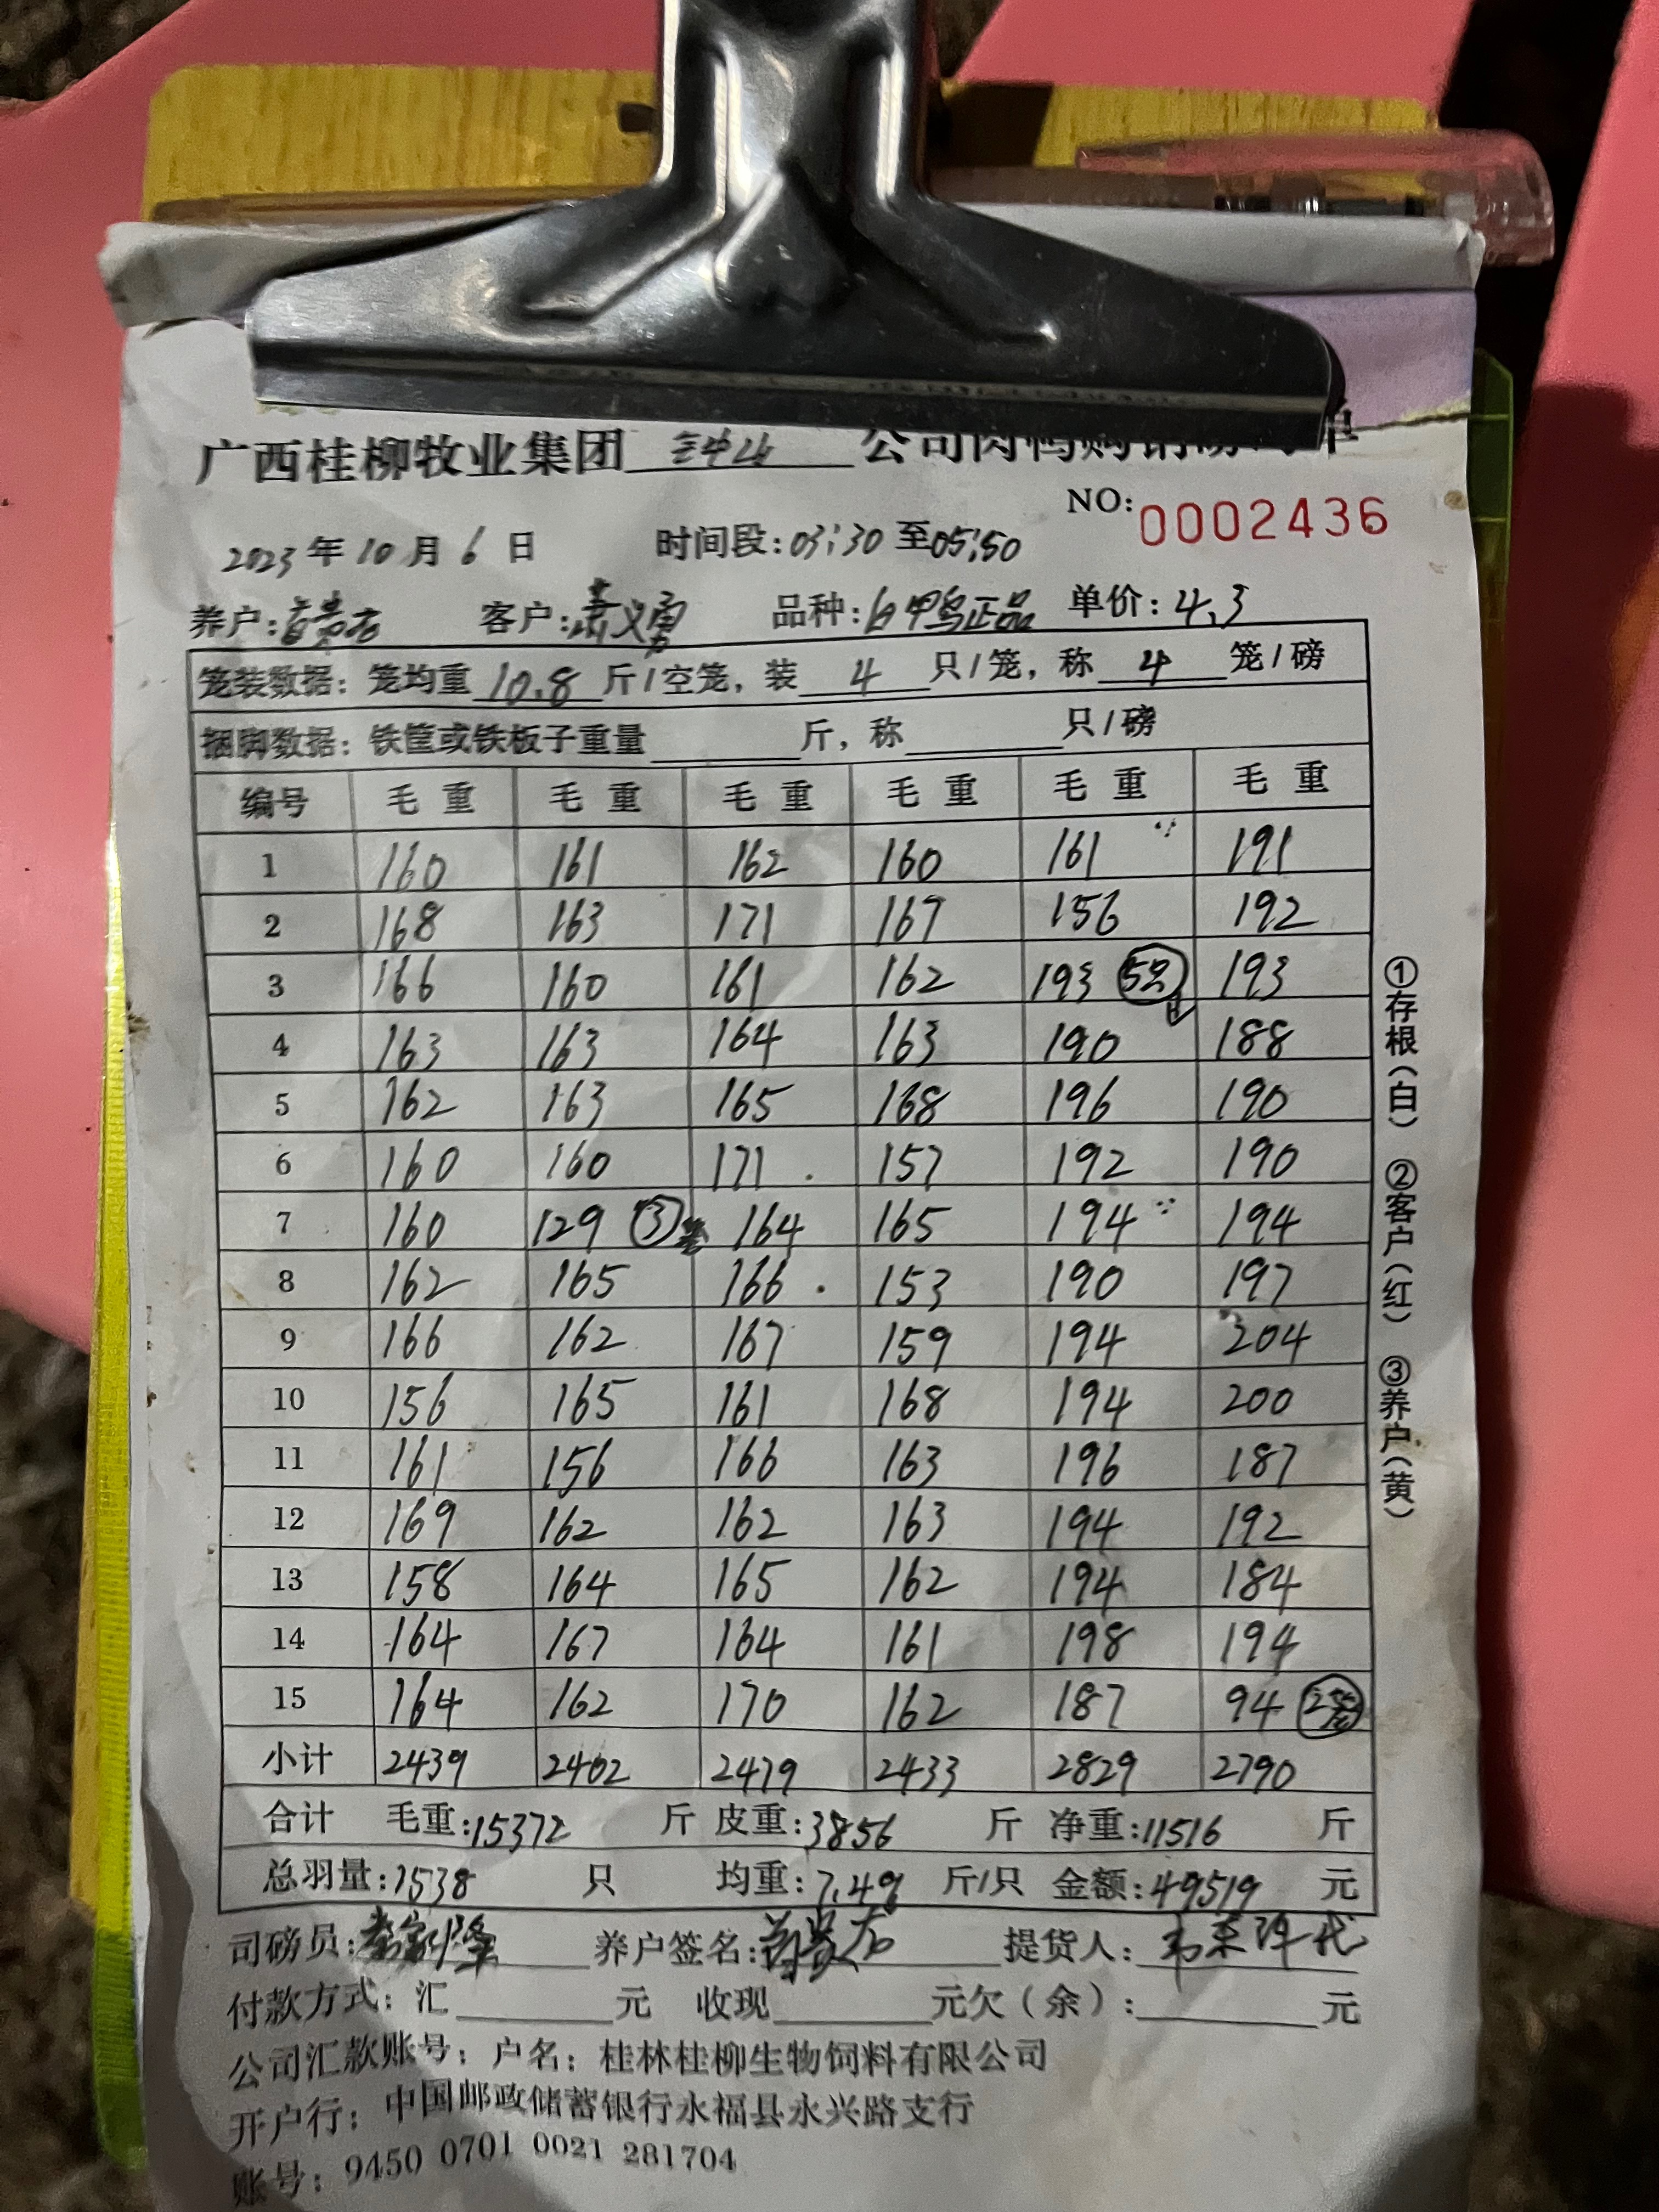 广西桂柳牧业集团 公司肉鸭购销磅码单
NO: 0002436
2023年10月6日 时间段:03:30至05:50
养户: 客户:萧义勇 品种:白甲鸟正品 单价:4.3
笼装数据:笼均重10.8斤/空笼,装4只/笼,称4笼/磅
捆脚数据:铁筐或铁板子重量 斤,称 只/磅
编号 毛重 毛重 毛重 毛重 毛重 毛重
1 160 161 162 160 161 191
2 168 163 171 167 156 192
3 166 160 161 162 193 5只 193
4 163 163 164 163 190 188
5 162 163 165 168 196 190
6 160 160 171 157 192 190
7 160 129 ③笼 164 165 194 194
8 162 165 166 153 190 197
9 166 162 167 159 194 204
10 156 165 161 168 194 200
11 161 156 166 163 196 187
12 169 162 162 163 194 192
13 158 164 165 162 194 184
14 164 167 164 161 198 194
15 164 162 170 162 187 94 2笼
小计 2439 2402 2479 2433 2829 2790
合计 毛重:15372 斤 皮重:3856 斤 净重:11516 斤
总羽量:1538 只 均重:7.49 斤/只 金额:49519 元
司磅员: 养户签名: 提货人:
付款方式:汇 元 收现 元欠(余): 元
公司汇款账号:户名:桂林桂柳生物饲料有限公司
开户行:中国邮政储蓄银行永福县永兴路支行
账号:9450 0701 0021 281704
①存根(白) ②客户(红) ③养户(黄)